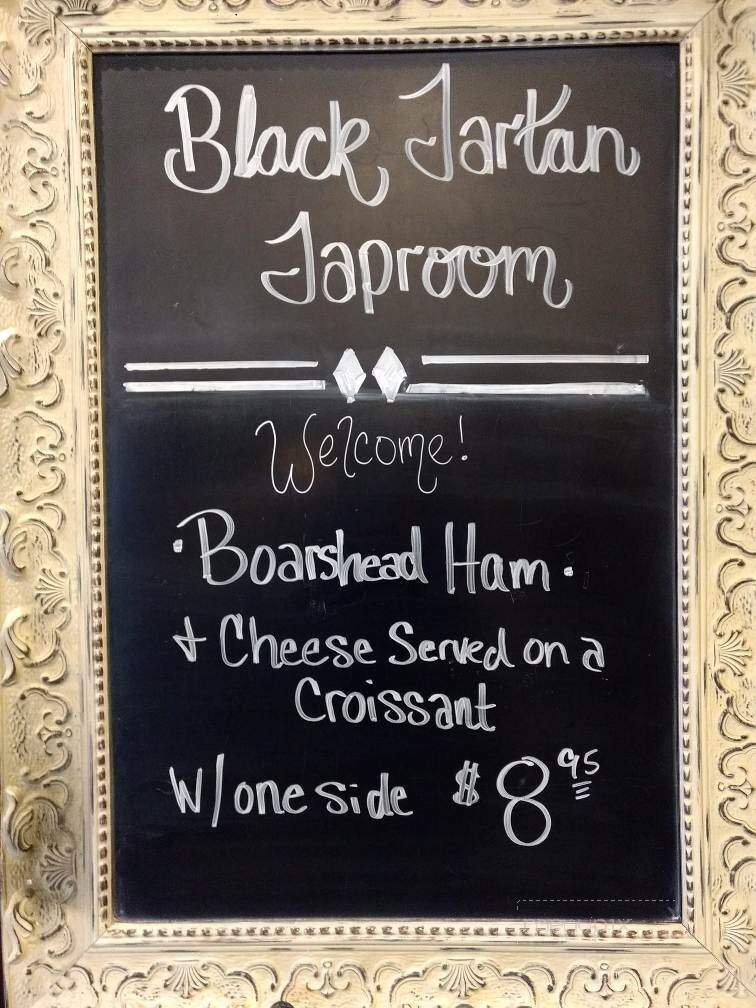 Black Tartan
Taproom
Welcome!
· Boarshead Ham ·
+ Cheese Served on a
Croissant
W/one side $8 95